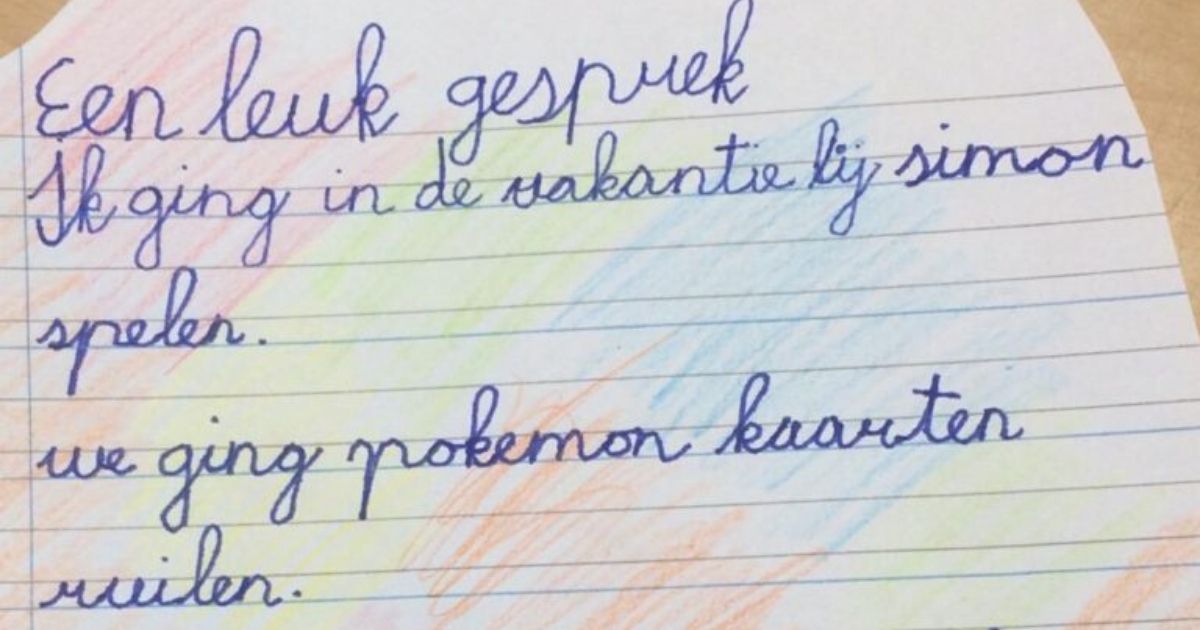 Een leuk gesprek
Ik ging in de vakantie bij simon
spelen.
we ging pokemon kaarten
ruilen.